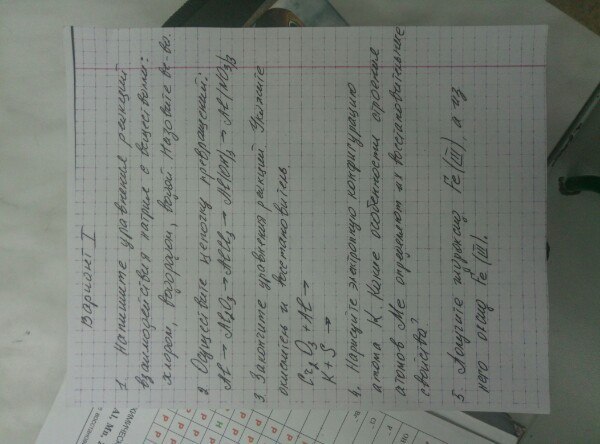 Вариант I
1. Напишите уравнения реакций
взаимодействия натрия с веществами:
хлором, водородом, водой. Назовите ве-ва.
2. Осуществите цепочку превращений:
Al → Al₂O₃ → AlCl₃ → Al(OH)₃ → Al(NO₃)₃
3. Закончите уравнения реакций. Укажите
окислитель и восстановитель
Cr₂O₃ + Al →
K + S →
4. Нарисуйте электронную конфигурацию
атома K. Какие особенности строения
атомов Me определяют их восстановительные
свойства?
5. Получите гидроксид Fe(III), а из
него оксид Fe(III).